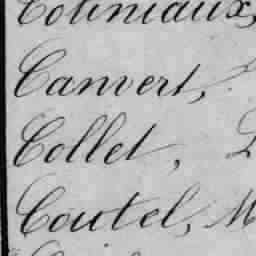 Coliniaux,
Canvert,
Collet, L
Coutel, M